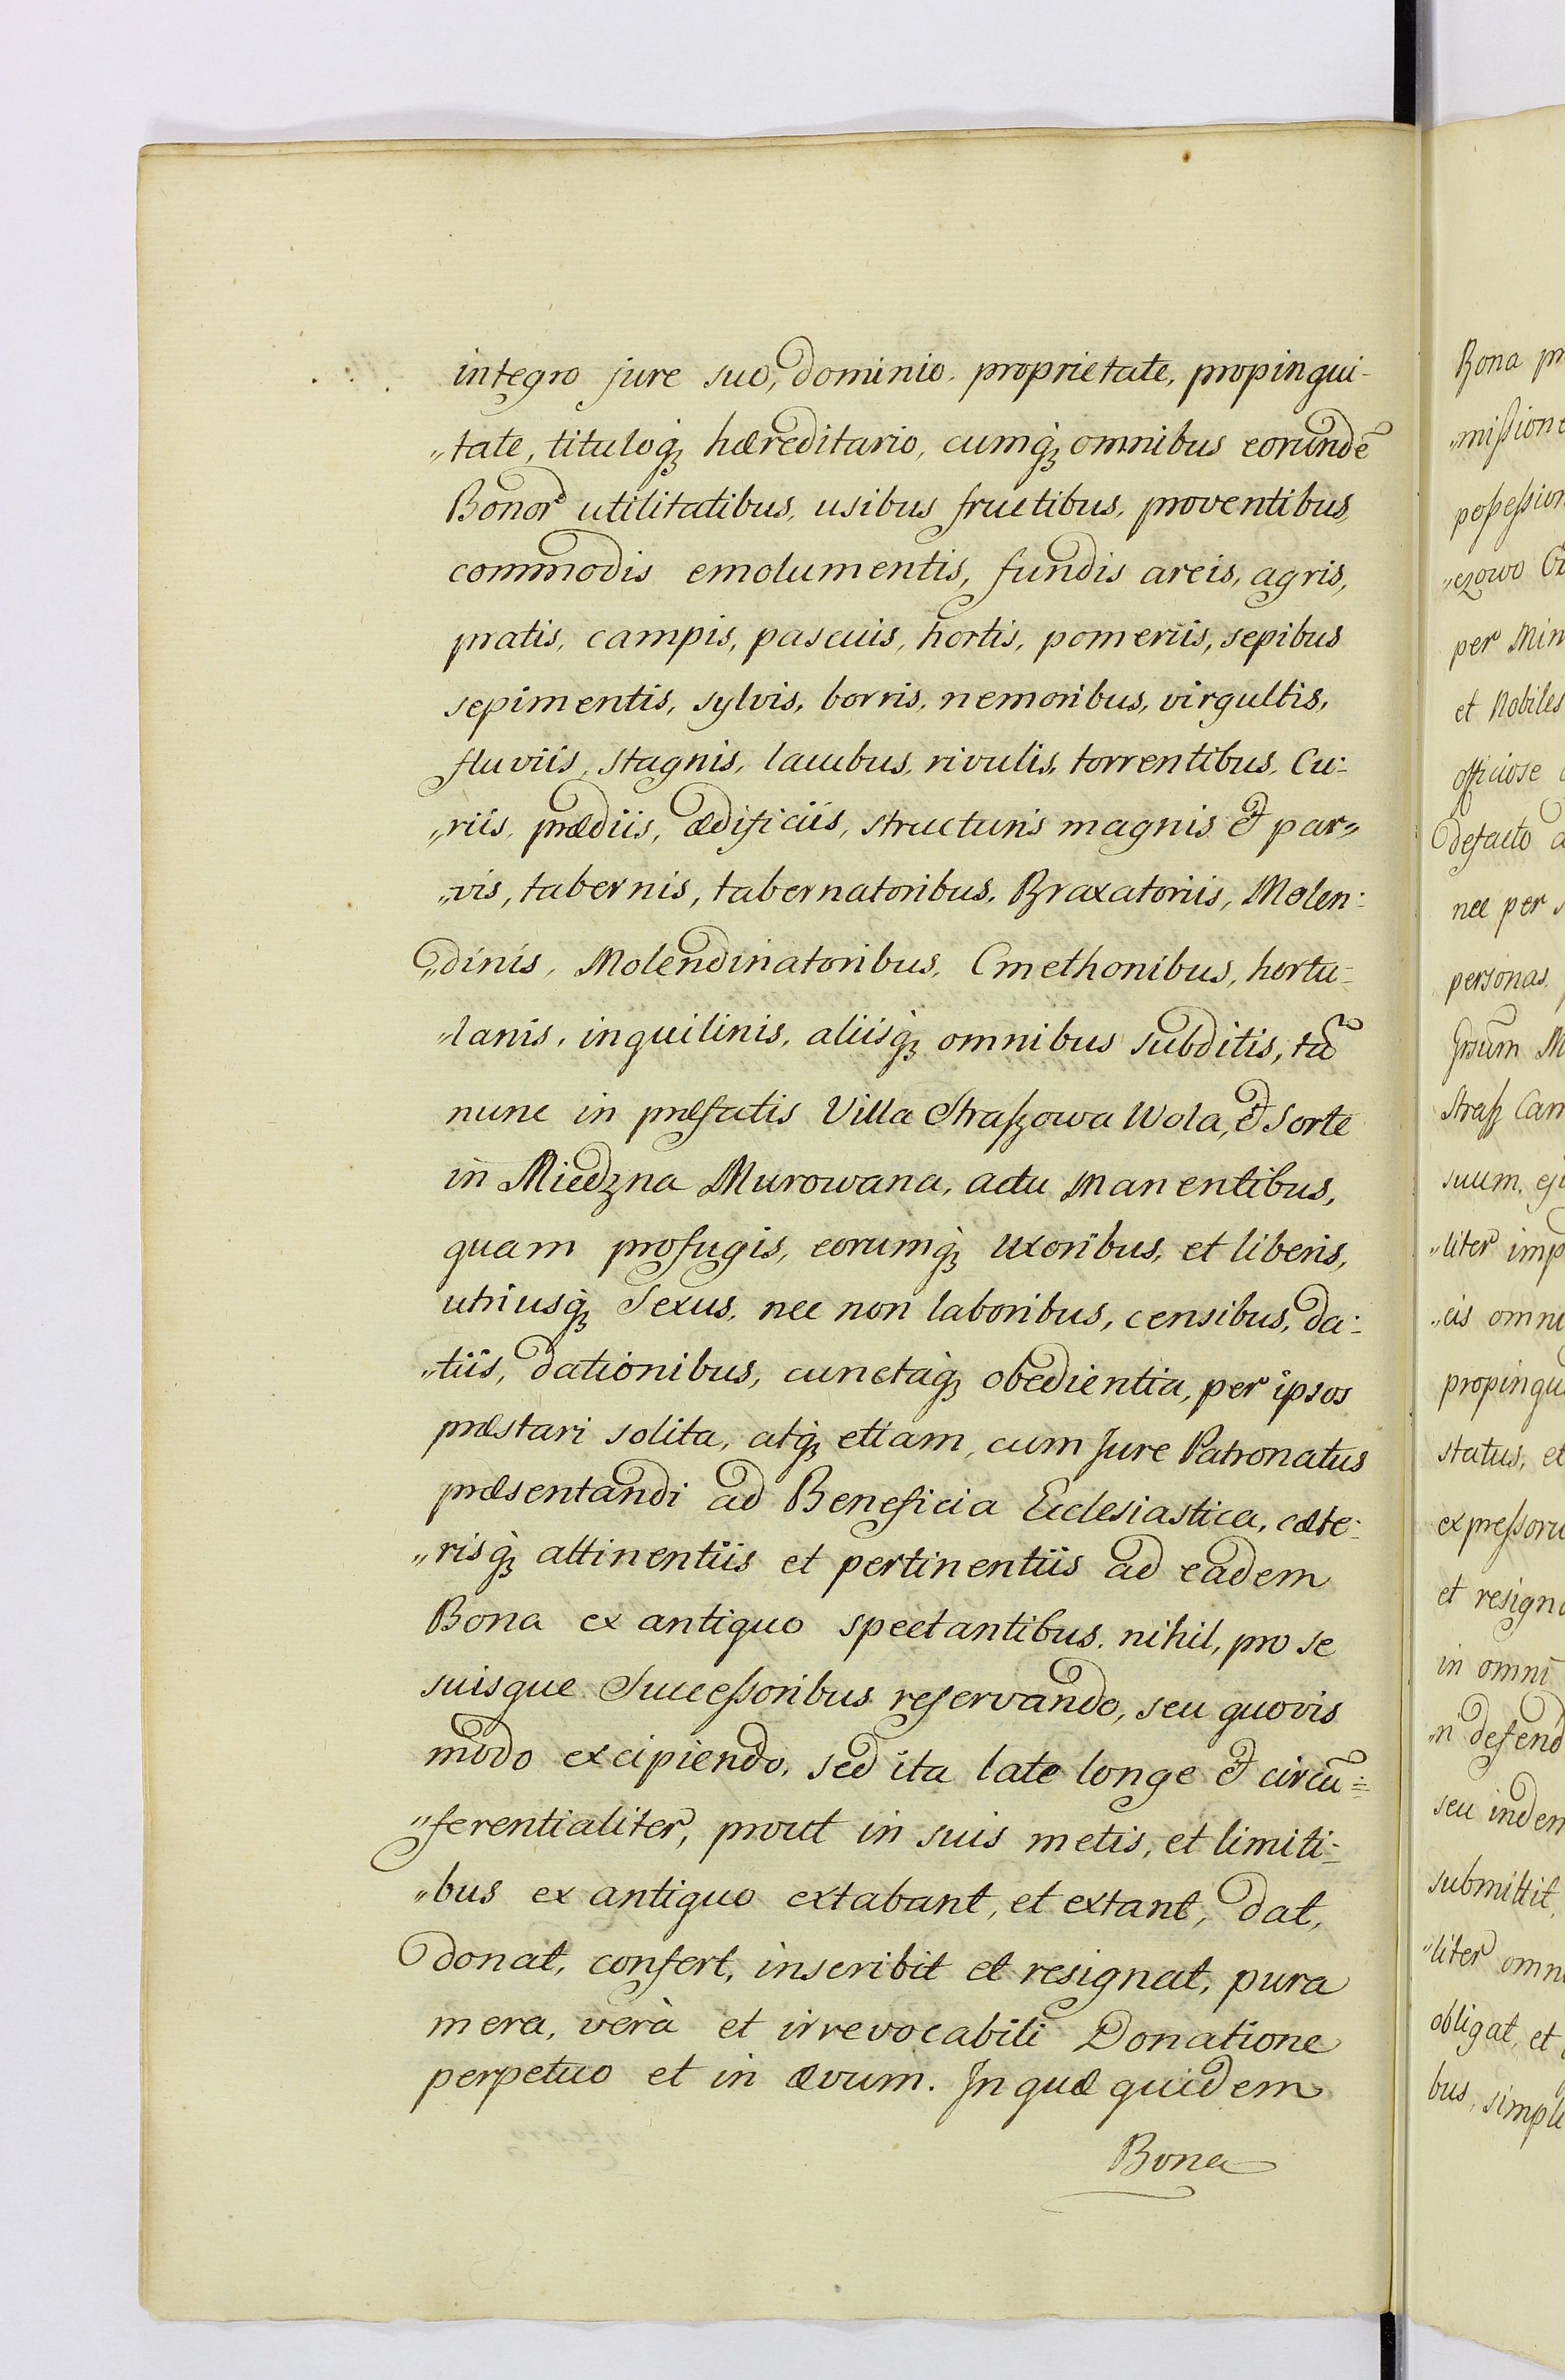 integro jure suo, dominio, proprietate, propinqui-
„tate, tituloq̃ꝫ hæreditario, cumq̃ꝫ omnibus eorundẽ
Bonor̃ utilitatibus, usibus fructibus, proventibus,
commodis emolumentis, fundis areis, agris,
pratis, campis, pascuis, hortis, pomeriis, sepibus
sepimentis, sylvis, borris, nemoribus, virgultis,
fluviis, stagnis, lacubus, rivulis, torrentibus, Cu:
„riis, prædiis, ædificiis, structuris magnis et par„
„vis, tabernis, tabernatoribus, Braxatoriis, Molen:
„dinis, Molendinatoribus, Cmethonibus, hortu-
„lanis, inquilinis, aliisq̃ꝫ omnibus subditis, tũ
nunc in præfatis Villa Straszowa Wola, et Sorte
in Miedzna Murowana, actu manentibus,
quam profugis, eorumq̃ꝫ uxoribus, et liberis,
utriusq̃ꝫ Sexus, nec non laboribus, censibus, da:
„tiis, dationibus, cunctaq̃ꝫ obedientia, per ipsos
præstari solita, atq̃ꝫ etiam, cum Jure Patronatus
præsentandi ad Beneficia Ecclesiastica, cæte:
„risq̃ꝫ attinentiis et pertinentiis ad eadem
Bona ex antiquo spectantibus, nihil, pro se
suisque Successoribus reservando, seu quovis
modo excipiendo, sed ita late longe et circũ:
„ferentialiter, prout in suis metis, et limiti:
„bus ex antiquo extabant, et extant, dat,
donat, confert, inscribit et resignat, pura
mera, verà et irrevocabili Donatione
perpetuo et in ævum. In quæ quidem
Bona
Bona
„missione
possession
„ezowo
per Min
et Nobiles
officiose
defacto
nec per
personas
Ipsum
Strasz Can
suum, ej
„liter imp
„cis omni
propinqu
status, et
expressoru
et resign
in omni
„n defend
seu indem
submittit,
„liter omn
obligat, et
bus, simpl